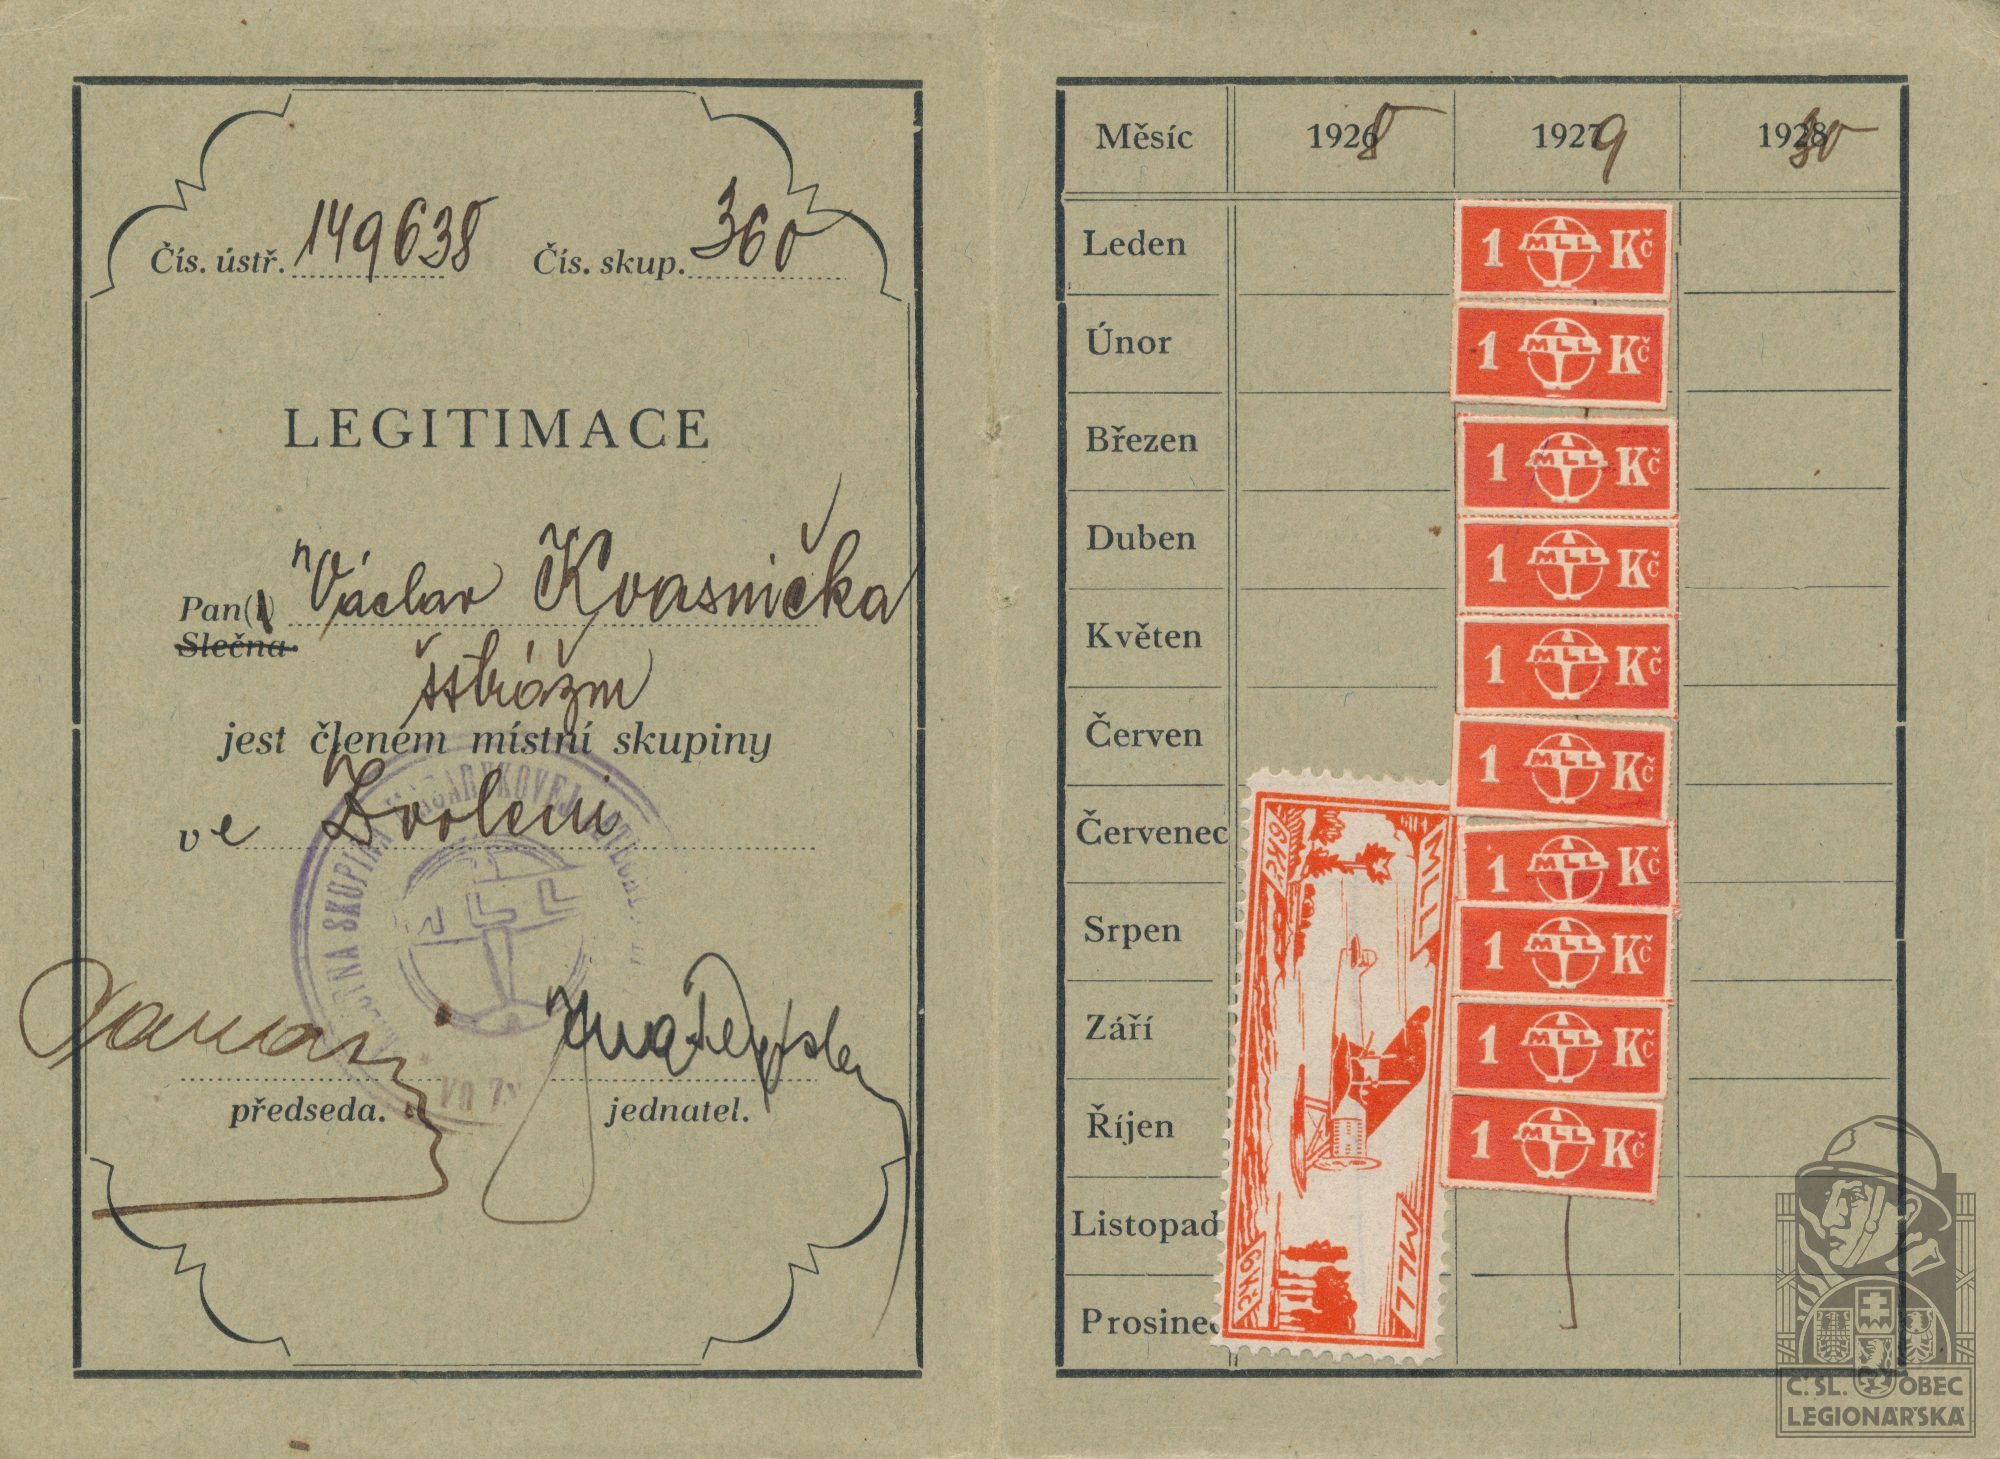 Čís. ústř. 149638 Čís. skup. 360
LEGITIMACE
Pan(í) Václav Kvasnička
Slečna
jest členem místní skupiny
ve Zvoleni
MIESTNA SKUPINA MASARYKOVEJ
MLL
předseda.
jednatel.
Měsíc 1926 8 1927 9 1928 30
Leden 1 MLL Kč
Únor 1 MLL Kč
Březen 1 MLL Kč
Duben 1 MLL Kč
Květen 1 MLL Kč
Červen 1 MLL Kč
Červenec 1 MLL Kč
Srpen 1 MLL Kč
Září 1 MLL Kč
Říjen 1 MLL Kč
Listopad
Prosinec
6 Kč MLL
6 Kč MLL
Č. SL. OBEC
LEGIONÁŘSKÁ